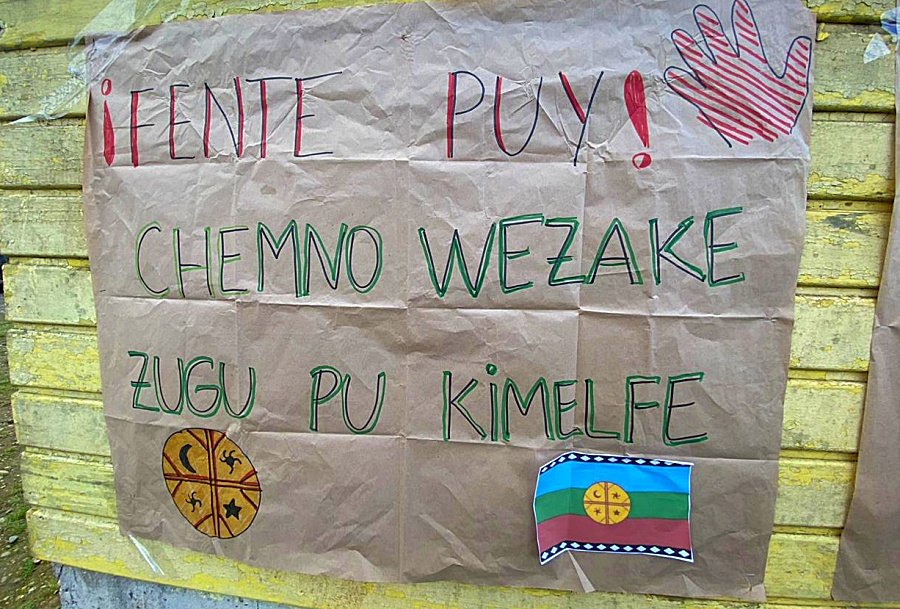 ¡FENTE PUY!
CHEMNO WEZAKE
ZUGU PU KIMELFE